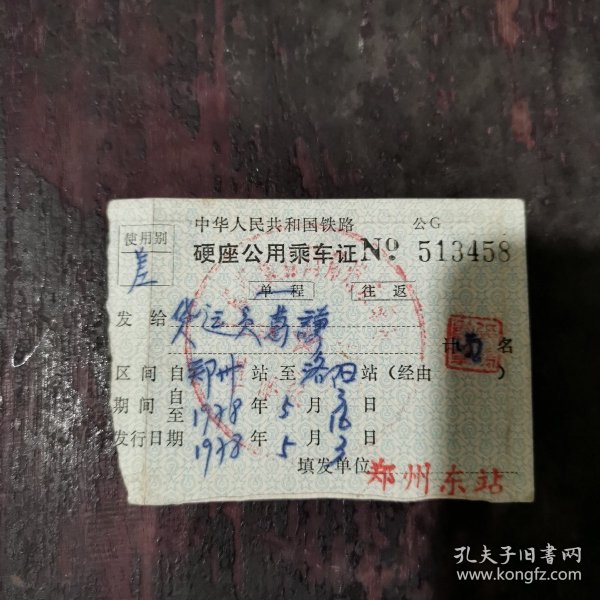 中华人民共和国铁路 公G
使用别
硬座公用乘车证 No 513458
差
单程 往返
发给 货运员
计 名
区间 自郑州站至洛阳站(经由 )
期间 自至 1978年5月3 16日
发行日期 1978年5月3日
填发单位 郑州东站
孔夫子旧书网
www.kongfz.com